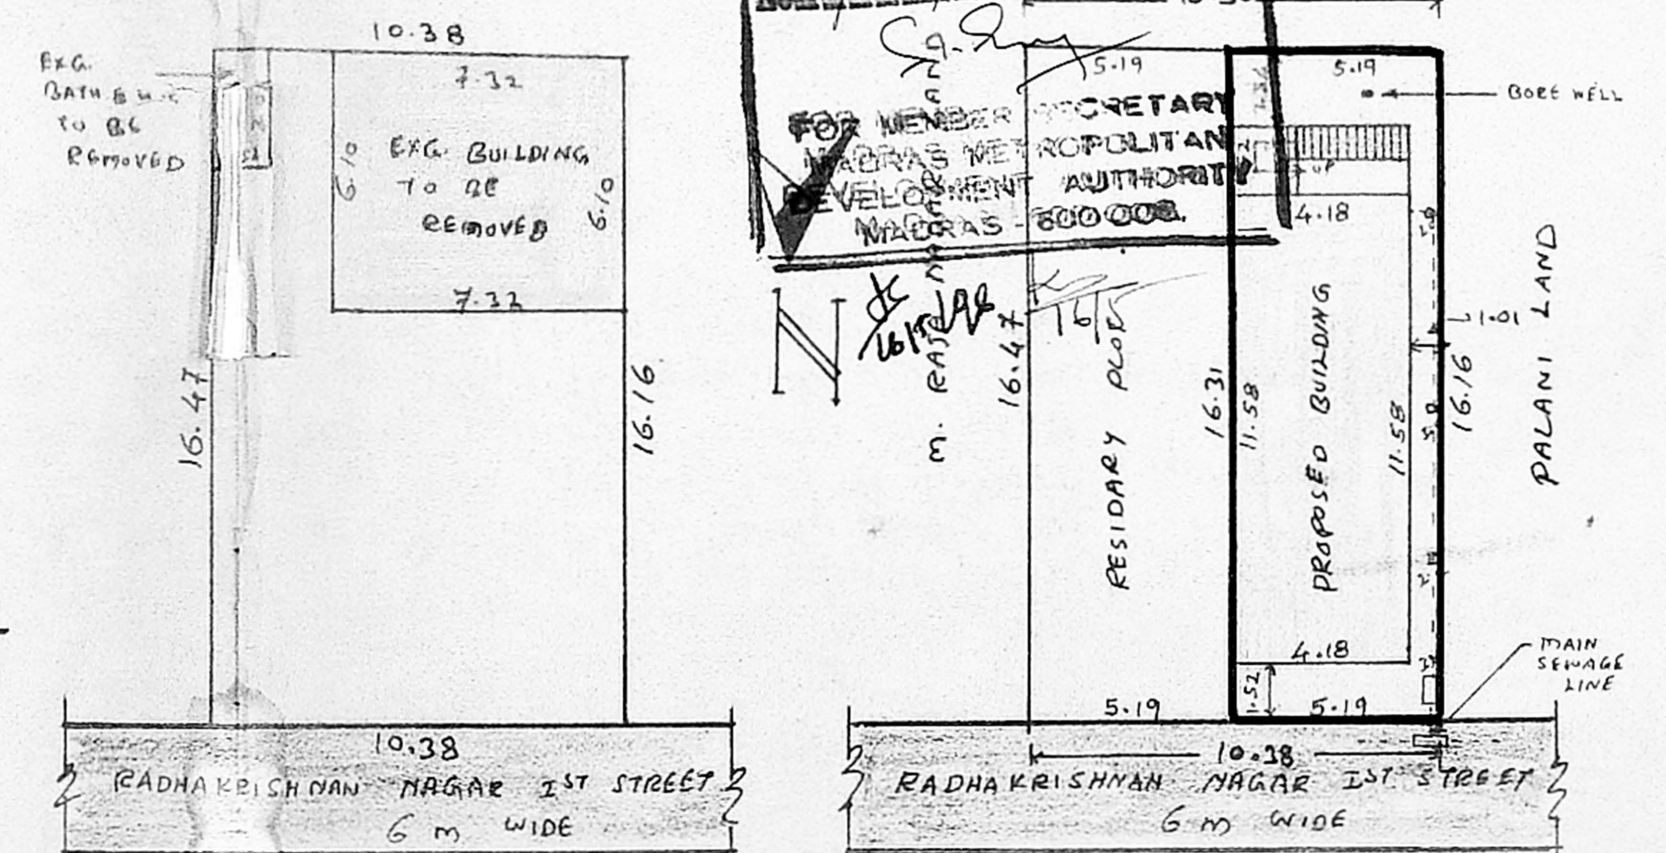 10.38
EXG.
BATH & W.C
TO BE
REMOVED
7.32
6.10
EXG. BUILDING
TO BE
REMOVED
6.10
7.32
16.47
16.16
10.38
RADHAKRISHNAN NAGAR IST STREET
6 m WIDE
5.19
5.19
BORE WELL
FOR MEMBER SECRETARY
MADRAS METROPOLITAN
DEVELOPMENT AUTHORITY
MADRAS - 600 008.
UP
4.18
N
16.47
RESIDARY PLOT
16.31
11.58
PROPOSED BUILDING
11.58
1.01
16.16
PALANI LAND
4.18
1.52
5.19
5.19
MAIN
SEWAGE
LINE
10.38
RADHAKRISHNAN NAGAR IST STREET
6 m WIDE